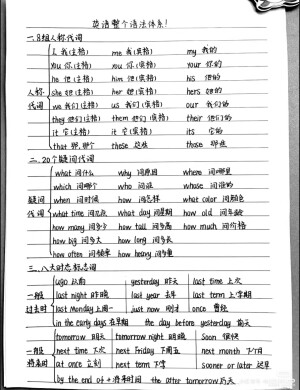 英语整个语法体系!
一.8组人称代词
I 我(主格) me 我(宾格) my 我的
you 你(主格) you 你(宾格) your 你的
he 他(主格) him 他(宾格) his 他的
人称 she 她(主格) her 她(宾格) hers 她的
代词 we 我们(主格) us 我们(宾格) our 我们的
they 他们(主格) them 他们(宾格) their 他们的
it 它(主格) it 它(宾格) its 它的
that 那,那个 these 这些 those 那些
二.20个疑问代词
what 问什么 why 问原因 where 问哪里
which 问哪个 who 问谁 whose 问谁的
疑问 when 问时候 how 问怎样 what color 问颜色
代词 what time 问几点 what day 问星期 how old 问年龄
how many 问多少 how tall 问多高 how much 问价格
how big 问多大 how long 问多长
how often 问频率 how heavy 问多重
三.八大时态标志词
ago 以前 yesterday 昨天 last time 上次
一般 last night 昨晚 last year 去年 last term 上学期
过去时 last Monday 上周一 just now 刚才 once 曾经
in the early days 在早期 the day before yesterday 前天
tomorrow 明天 tomorrow night 明晚 soon 很快
一般 next time 下次 next Friday 下周五 next month 下个月
将来时 at once 立刻 next term 下学 sooner or later 迟早
by the end of + 将来时间 the after tomorrow 后天